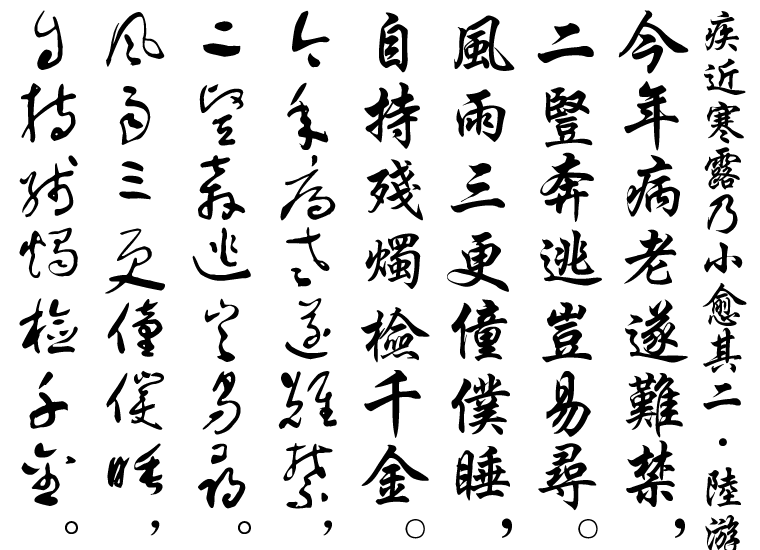 疾近寒露乃小愈其二·陸游
今年病老遂難禁,
二豎奔逃豈易尋。
風雨三更僮僕睡,
自持殘燭檢千金。
今年病老遂難禁,
二豎奔逃豈易尋。
風雨三更僮僕睡,
自持殘燭檢千金。